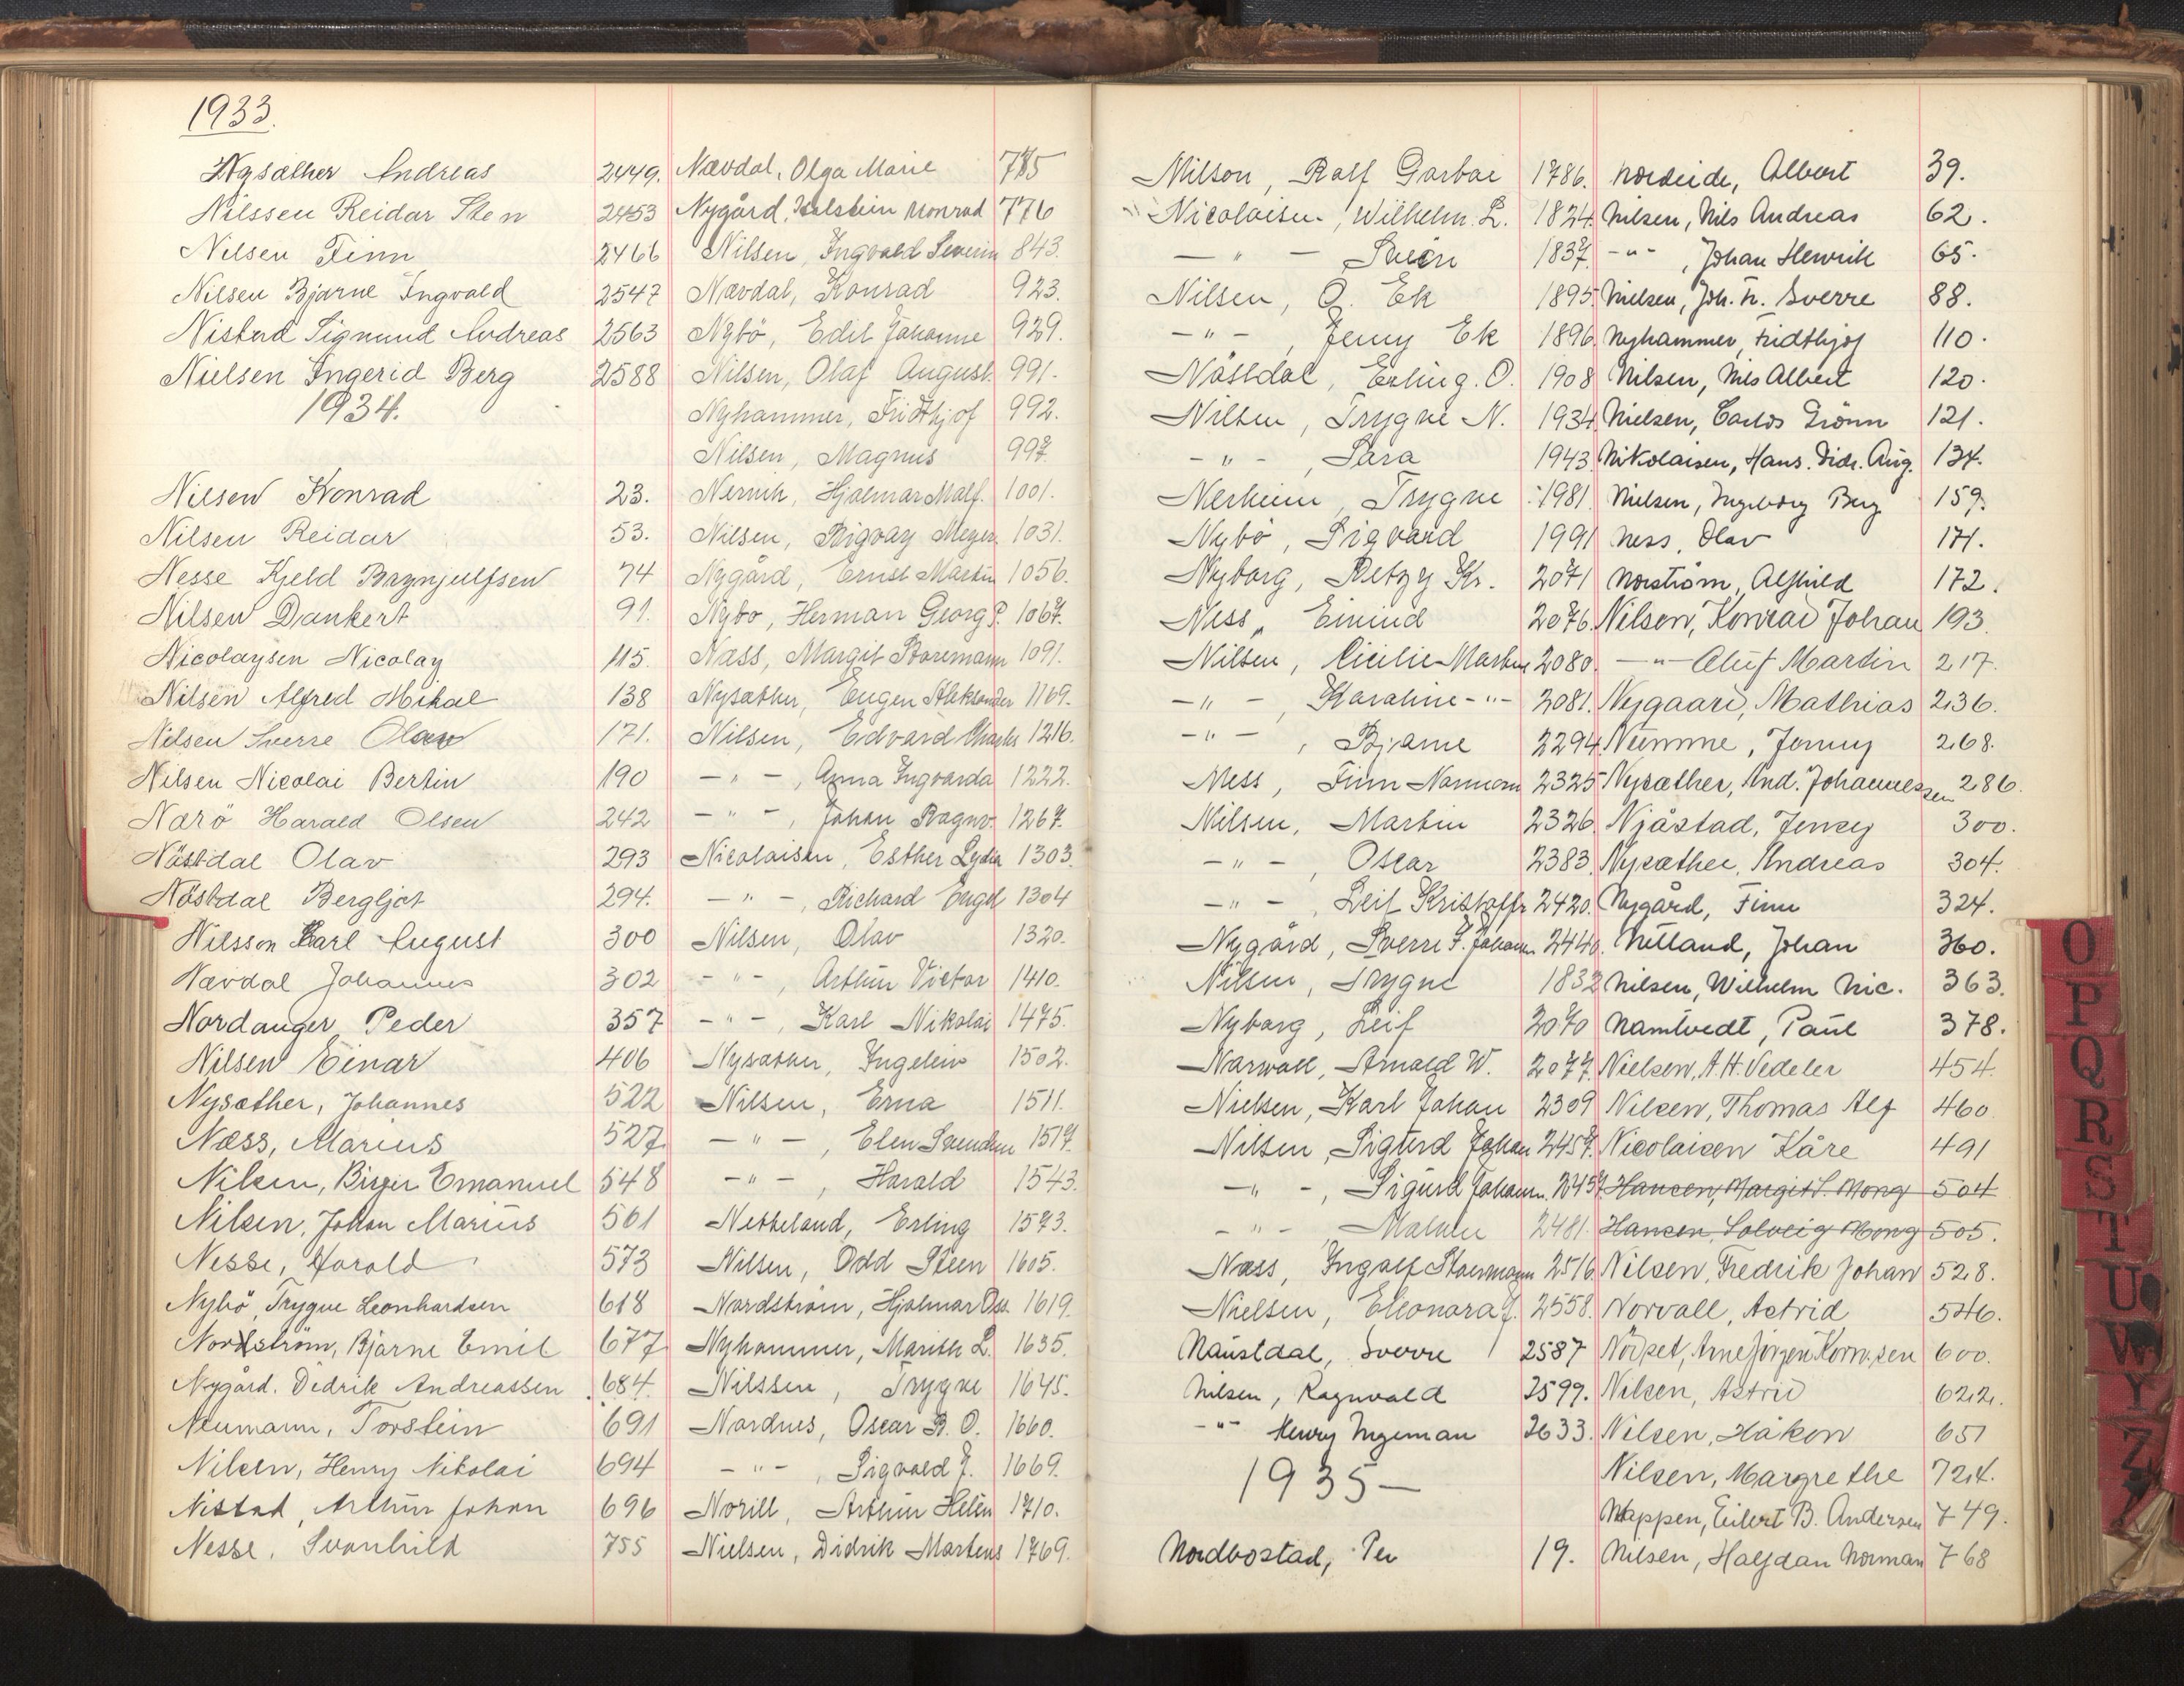 1933.
Nysæther Andreas 2449.
Nilssen Reidar Sten 2453
Nilsen Finn 2466
Nilsen Bjarne Ingvald 2547
Nistad Sigmund Andreas 2563
Nielsen Ingerid Berg 2588
1934.
Nilsen Konrad 23.
Nilsen Reidar 53.
Nesse Kjeld Brynjulfsen 74
Nilsen Dankert 91.
Nicolaysen Nicolay 115.
Nilsen Alfred Mikal 138
Nilsen Sverre Olav 171.
Nilsen Nicolai Bertin 190
Narö Harald Olsen 242
Nästdal Olav 293
Nästdal Bergljot 294.
Nilsson Karl August 300
Nævdal Johannes 302
Nordanger Peder 357
Nilsen Einar 406
Nysæther, Johannes 522
Næss, Marius 527
Nilsen, Birger Emanuel 548
Nilsen, Johan Marius 561
Nesse, Harald 573
Nybö, Trygve Leonhardsen 618
Nordström, Bjarne Emil 677
Nygård. Didrik Andreassen 684.
Neumann, Torstein 691
Nilsen, Henry Nikolai 694
Nistad, Arthur Johan 696
Nesse, Svanhild 755
Nævdal, Olga Marie 775
Nygård, Halstein Monrad 776
Nilsen, Ingvald Severin 843.
Nævdal, Konrad 923.
Nybö, Edit Johanne 929.
Nilsen, Olaf August. 991.
Nyhammer, Fridthjof 992.
Nilsen, Magnus 997.
Hjalmar 1001.
Nilsen, Meyer 1031.
Nygård, Ernst Martin 1056.
Nybo, Herman Georg P. 1067.
Næss, Margit 1091.
Nysæther, Eugen Aleksander 1169.
Nilsen, Edvard Charles 1216.
- " - , Anna Ingvarda 1222.
- " - , Johan Ragnv. 1267.
Nicolaisen, Esther Lydia 1303.
- " - , Richard Engel 1304
Nilsen, Olav 1320.
- " - , Arthur Victor 1410.
- " - , Karl Nikolai 1475.
Nysæther, Ingelein 1502.
Nilsen, Erna 1511.
- " - , Elen 1517.
- " - , Harald 1543.
Netteland, Erling 1573.
Nilsen, Odd Steen 1605.
Nordström, Hjalmar Osc. 1619.
Nyhammer, Marith L. 1635.
Nilssen, Trygve 1645.
Nordnes, Oscar R. O. 1660.
- " - , Sigvald J. 1669.
Norill, Arthur Helén 1710.
Nielsen, Didrik Martens 1769.
Nilson, Ralf Garbai 1786.
Nicolaisen, Wilhelm L. 1824.
- " - 1837.
Nilsen, O. Ek 1895
- " - , Jenny Ek 1896
Nästdal, Erling. O. 1908
Nilsen, Trygve N. 1934.
- " - , Sara 1943.
Nerheim, Trygve 1981
Nybö, Sigvard 1991
Nyborg, Betzy Kr. 2071
Ness, Einind 2076.
Nilsen, Cicilie Marten 2080.
- " - , Karoline - " - 2081.
- " - , Bjarne 2294
Ness, Finn Normann 2325
Nilsen, Martin 2326.
- " - , Oscar 2383
- " - , Leif Kristoffr 2420.
Nygård, Sverre F. Johan 2440.
Nilsen, Trygve 1832
Nyborg, Leif 2070
Narwall, Arnold W. 2077.
Nielsen, Karl Johan 2309
Nilsen, Sigurd Johan 2457.
- " - , Sigurd Johann. 2457
- " - , 2481.
Næss, Ingolf Stoermann 2516
Nielsen, Eleonora J. 2558.
Naustdal, Sverre 2587
Nilsen, Ragnvald 2599.
- " - Henry Ingeman 2633.
1935 —
Nordbostad, Per 19.
Nordeide, Albert 39.
Nilsen, Nils Andreas 62.
- " - , Johan Henrik 65.
Nielsen, Joh. N. Sverre 88.
Nyhammer, Fridthjof 110.
Nilsen, Nils Albert 120.
Nielsen, Carlos Grönn 121.
Nikolaisen, Hans. Didr. Aug. 134.
Nielsen, Ingeborg Berg 159.
Ness, Olav 171.
Norström, Alfhild 172.
Nilsen, Konrad Johan 193
- " - Oluf Martin 217.
Nygaard, Mathias 236.
Numme, Jenny 268.
Nysæther, And. Johannessen 286.
Njåstad, Jenny 300.
Nysæther, Andreas 304.
Nygård, Finn 324.
Netland, Johan 360.
Nilsen, Wilhelm Nic. 363.
Namtvedt, Paul 378.
Nielsen, A. H. Vedeler 454.
Nilsen, Thomas Alf 460
Nicolaisen Kåre 491
Hansen, Margit S. Mong 504
Hansen, Solveig Mong 505.
Nilsen, Fredrik Johan 528.
Norvall, Astrid 546.
Nörset, Arne Jörgen 600.
Nilsen, Astrid 622.
Nilsen, Håkon 651
Nilsen, Margrethe 724.
Nappen, Eilert B. Andersen 749.
Nilsen, Halfdan Norman 768
O
P
Q
R
S
T
U
W
Y
Z